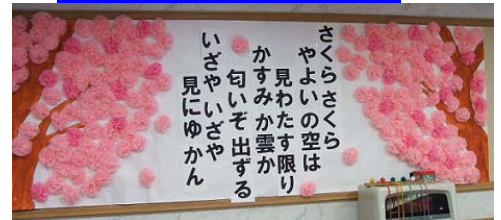 さくら さくら
やよいの空は
見わたす限り
かすみか雲か
匂いぞ出ずる
いざやいざや
見にゆかん